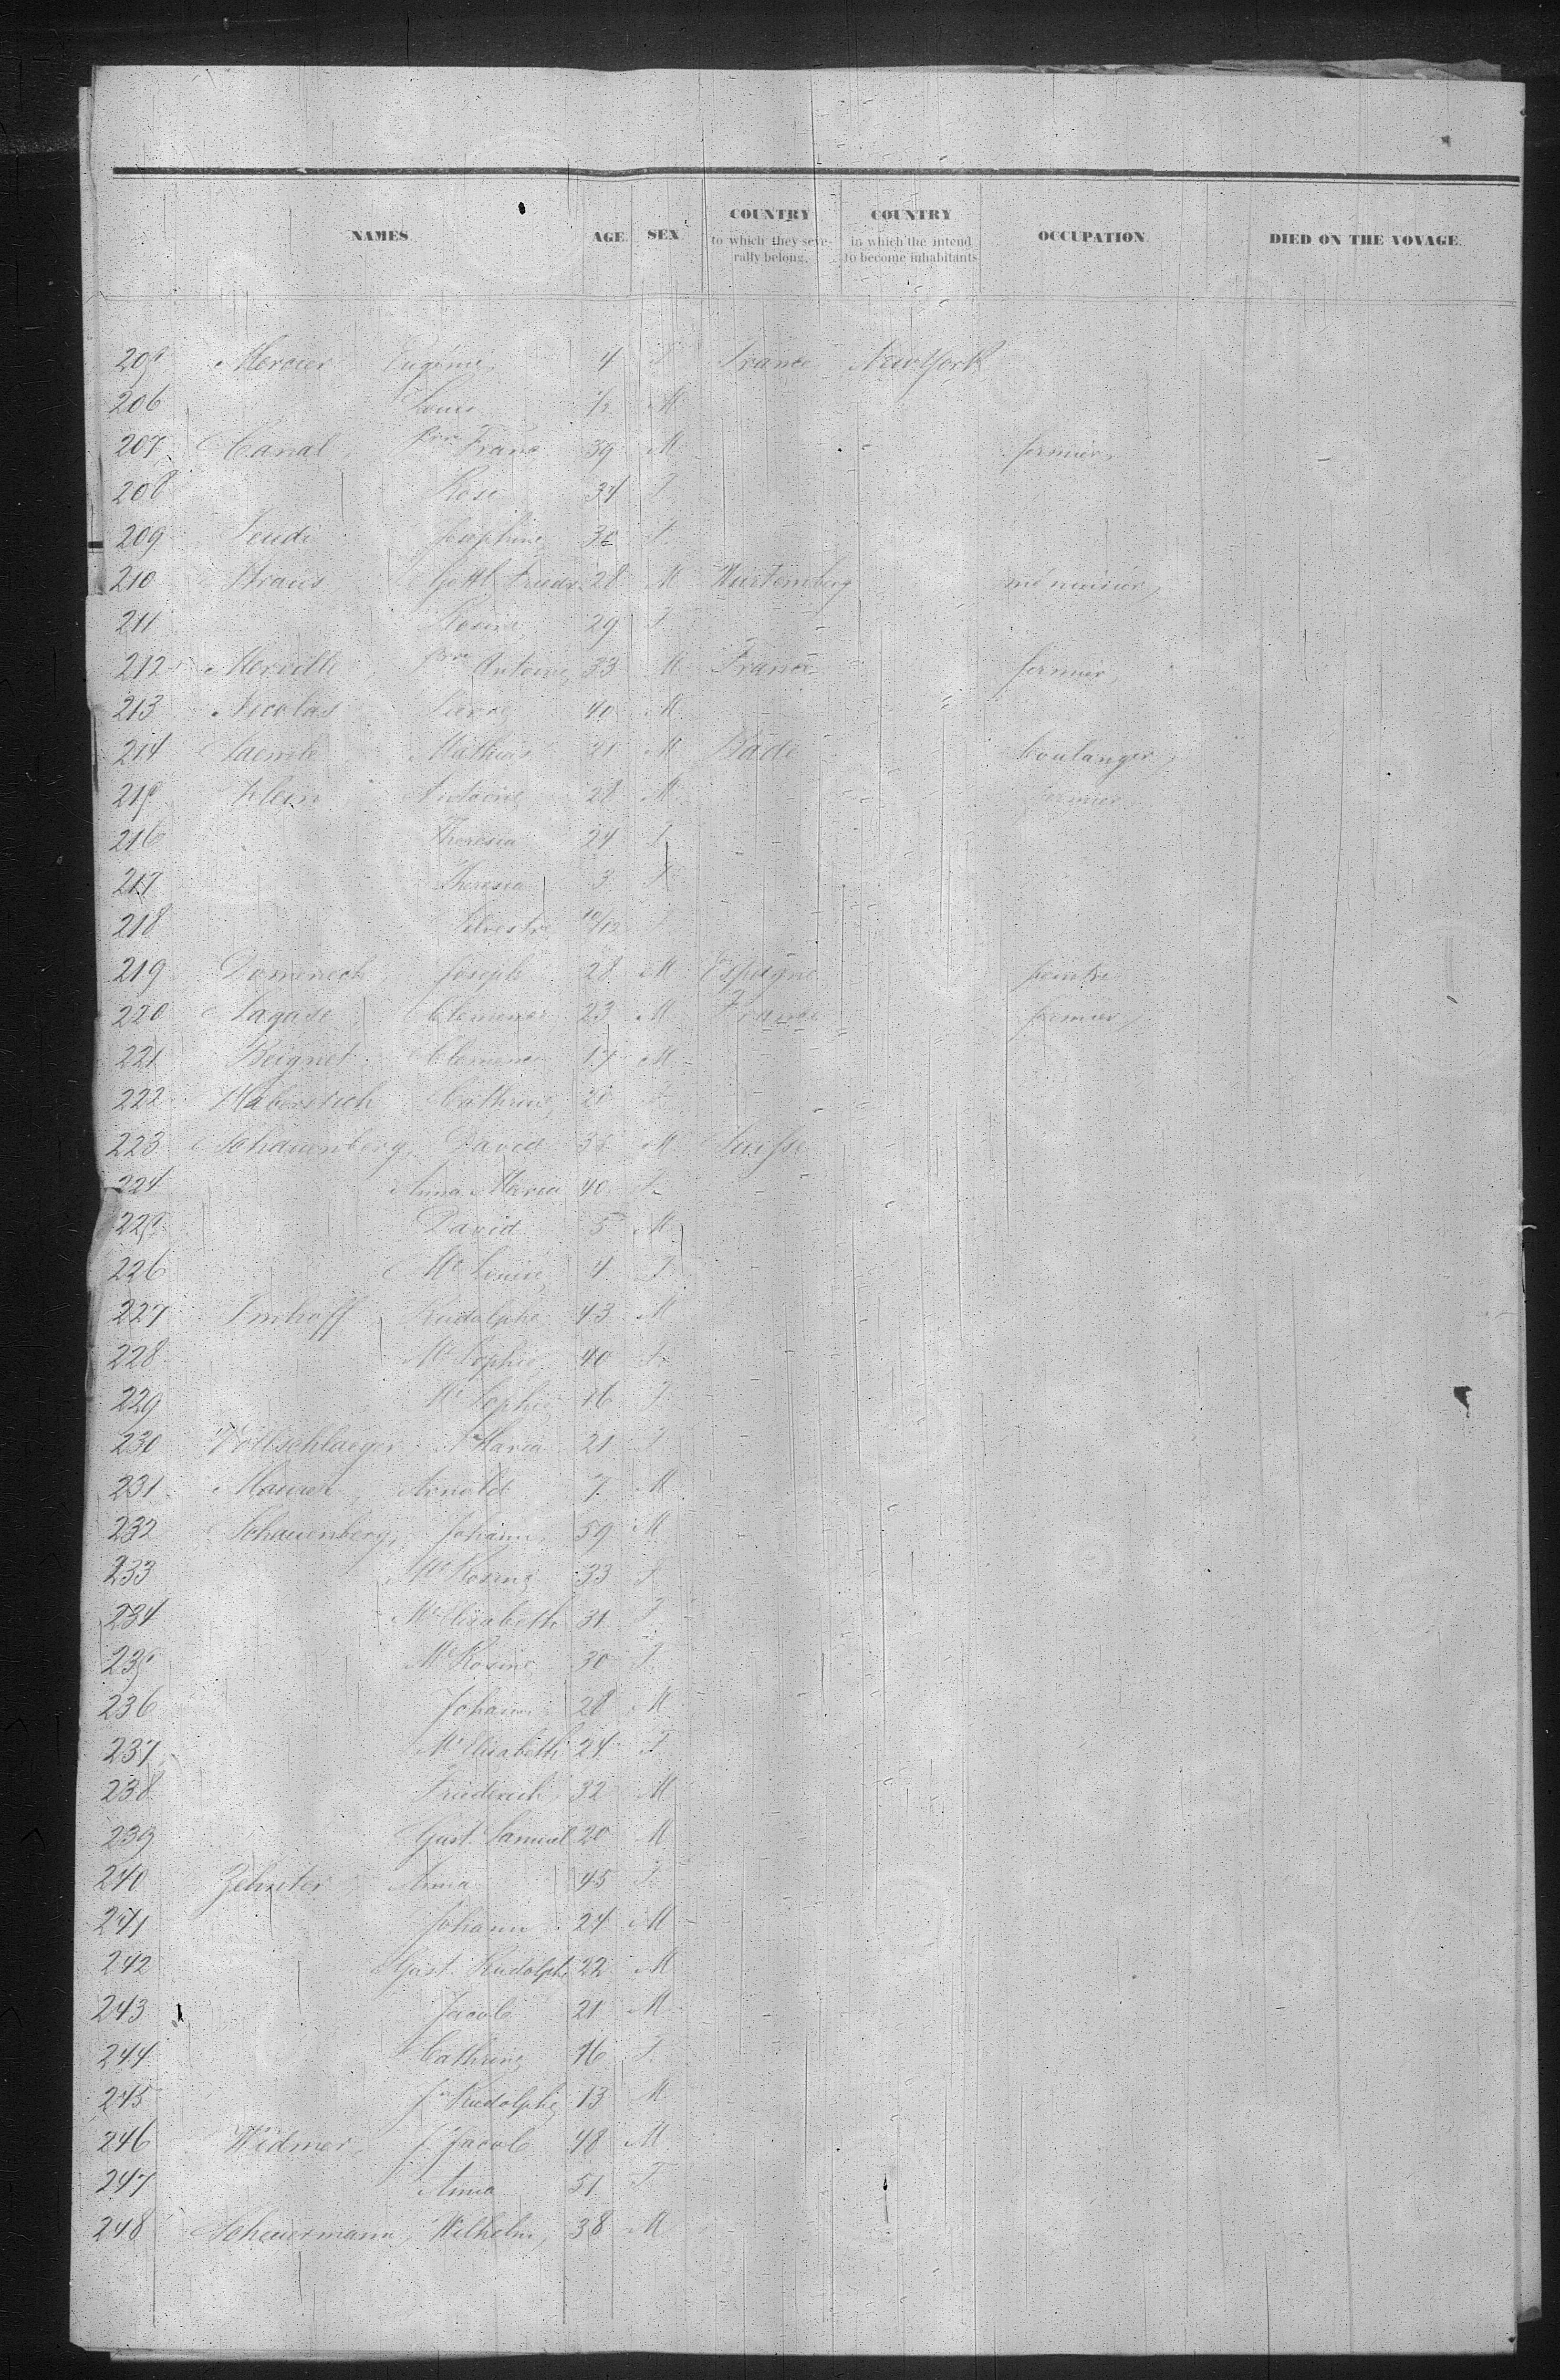 NAMES. AGE. SEX. COUNTRY to which they severally belong. COUNTRY in which the intend to become inhabitants OCCUPATION. DIED ON THE VOYAGE.
205 Mercier Eugénie 4 F France New York
206 Louis M
207 Canal, Franc 39 M fermier,
208 Rose 34 F
209 Josephine F
210 Straus Gottl. Friedr. 28 M Würtemberg
211 29 F
212 Antoine 33 M France fermier,
213 Nicolas Pierre 40 M
214 Mathias 21 M Bade boulanger,
215 Klein Antoine 28 M fermier
216 Theresia 24 F
217 Theresia 3 F
218 Silvestre 10/12 F
219 Domenech Joseph 28 M Espagne peintre
220 Lagade, Clemence 23 M France fermier,
221 Beignet Clemence 17 M
222 Haberstich Cathrine 20 F
223 Schauenberg, David M Suisse
224 Anna Maria 40 F
225 David 5 M
226 4 F
227 Imhoff, Rudolphe 43 M
228 Mr Sophie 40 F
229 Mr Sophie 16 F
230 Vollschlaeger Maria 21 F
231 Maurer, Arnold 7 M
232 Schauenberg, Johann 59 M
233 Mr Rosine 33 F
234 Mr Elisabeth 31 F
235 Mr Rosine 30 F
236 Johann 28 M
237 Mr Elisabeth 24 F
238 Friederich 32 M
239 Gust. Samuel 20 M
240 Zehnter, Anna 45 F
241 Johann 24 M
242 Gust. Rudolph 22 M
243 Jacob 21 M
244 Cathrine 16 F
245 J. Rudolphe 13 M
246 Widmer, J. Jacob 48 M
247 Anna 51 F
248 Scheuermann, Wilhelm, 38 M